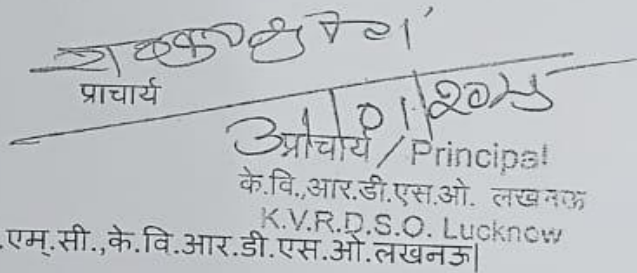 प्राचार्य
31/01/2025
प्राचार्य / Principal
के.वि.,आर.डी.एस.ओ. लखनऊ
K.V.R.D.S.O. Lucknow
.एम्.सी.,के.वि.आर.डी.एस.ओ.लखनऊ|